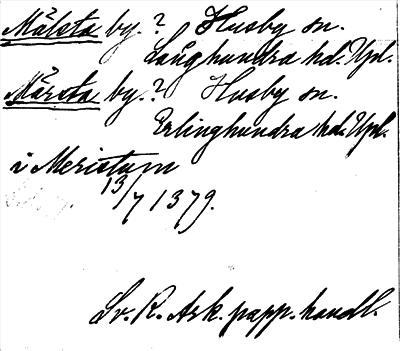 Mälsta by.? Husby sn.
Långhundra hd. Upl.
Märsta by.? Husby sn.
Erlinghundra hd. Upl.
i Meristum
13/7 1379.
Sv. R. Ark. papp. handl.